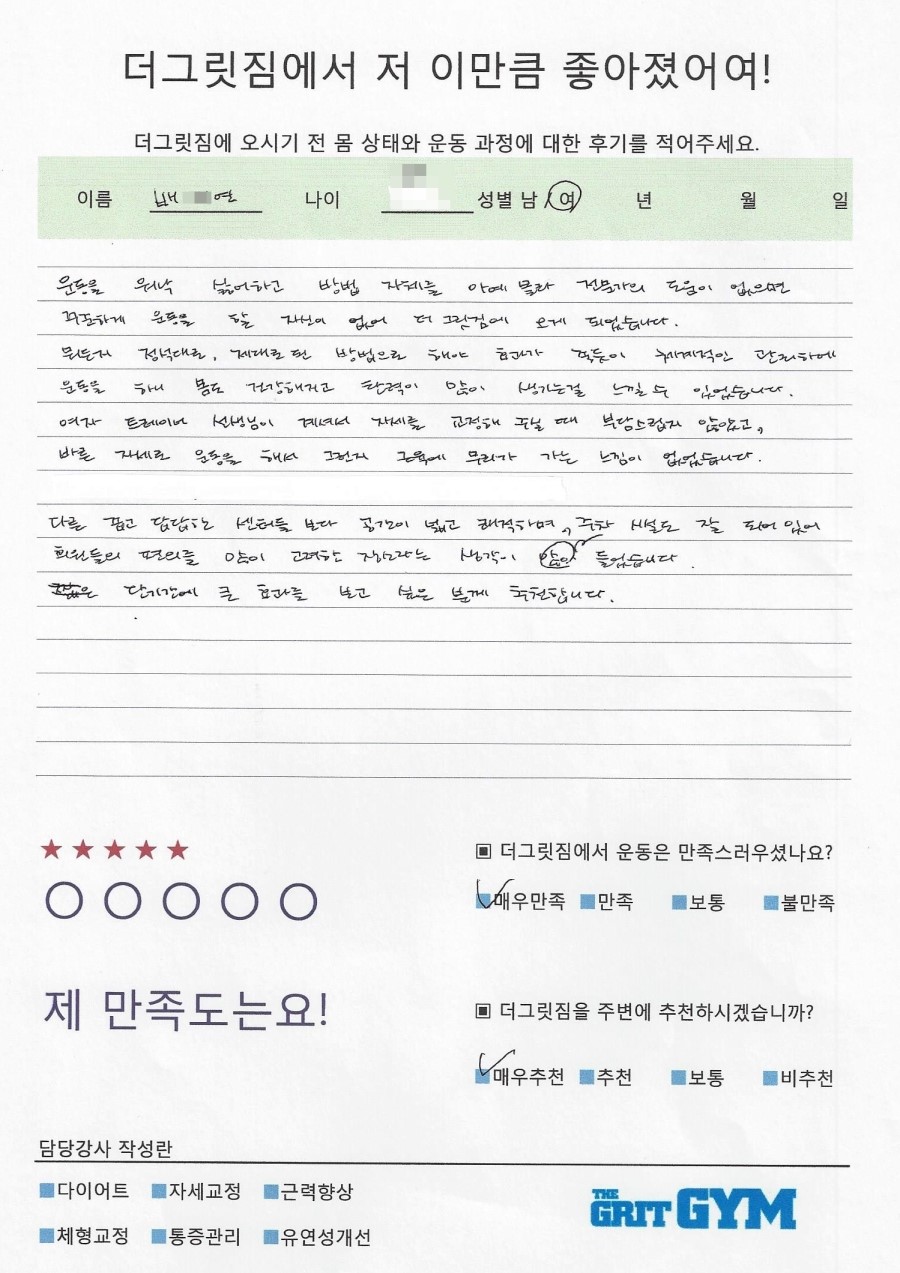 더그릿짐에서 저 이만큼 좋아졌어여!
더그릿짐에 오시기 전 몸 상태와 운동 과정에 대한 후기를 적어주세요.
이름 배 연 나이 성별 남/여 년 월 일
운동을 워낙 싫어하고 방법 자체를 아예 몰라 전문가의 도움이 없으면
꾸준하게 운동을 할 자신이 없어 더그릿짐에 오게 되었습니다.
뭐든지 정석대로, 제대로 된 방법으로 해야 효과가 있듯이 체계적인 관리하에
운동을 하니 몸도 건강해지고 탄력이 많이 생기는걸 느낄 수 있었습니다.
여자 트레이너 선생님이 계셔서 자세를 교정해 주실 때 부담스럽지 않았고,
바른 자세로 운동을 해서 그런지 근육에 무리가 가는 느낌이 없었습니다.
다른 좁고 답답한 센터들 보다 공간이 넓고 쾌적하며, 주차 시설도 잘 되어 있어
회원들의 편의를 많이 고려한 장소라는 생각이 많이 들었습니다.
단기간에 큰 효과를 보고 싶은 분께 추천합니다.
★★★★★
▣ 더그릿짐에서 운동은 만족스러우셨나요?
매우만족 만족 보통 불만족
제 만족도는요!
▣ 더그릿짐을 주변에 추천하시겠습니까?
매우추천 추천 보통 비추천
담당강사 작성란
다이어트 자세교정 근력향상
체형교정 통증관리 유연성개선
THE GRIT GYM